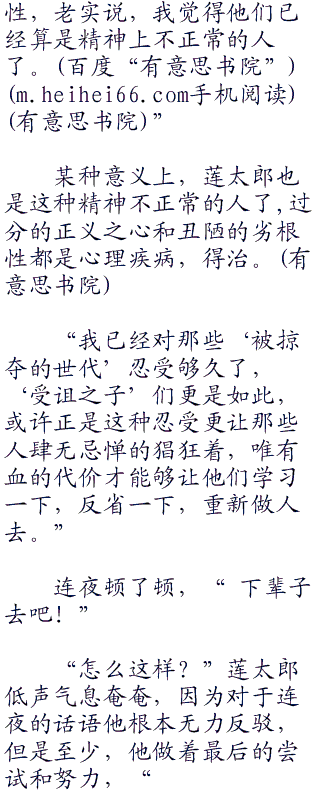 性，老实说，我觉得他们已
经算是精神上不正常的人
了。(百度“有意思书院”)
(m.heihei66.com手机阅读)
(有意思书院)”
某种意义上，莲太郎也
是这种精神不正常的人了,过
分的正义之心和丑陋的劣根
性都是心理疾病，得治。(有
意思书院)
“我已经对那些‘被掠
夺的世代’忍受够久了，
‘受诅之子’们更是如此，
或许正是这种忍受更让那些
人肆无忌惮的猖狂着，唯有
血的代价才能够让他们学习
一下，反省一下，重新做人
去。”
连夜顿了顿，“ 下辈子
去吧！”
“怎么这样？”莲太郎
低声气息奄奄，因为对于连
夜的话语他根本无力反驳，
但是至少，他做着最后的尝
试和努力，“